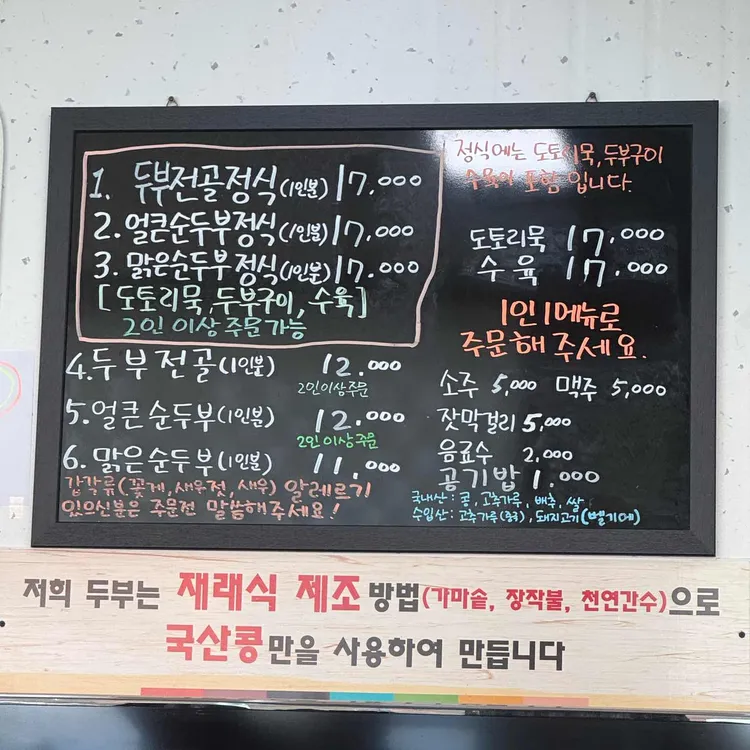 1. 두부전골정식(1인분) 17.000
2. 얼큰순두부정식(1인분) 17.000
3. 맑은순두부정식(1인분) 17.000
[도토리묵, 두부구이, 수육]
2인 이상 주문가능
4. 두부전골(1인분) 12.000
2인이상주문
5. 얼큰순두부(1인분) 12.000
2인이상주문
6. 맑은순두부(1인분) 11.000
갑각류(꽃게, 새우젓, 새우) 알레르기
있으신분은 주문전 말씀해주세요!
정식에는 도토리묵, 두부구이
수육이 포함 입니다.
도토리묵 17.000
수육 17.000
1인 1메뉴로
주문해 주세요.
소주 5,000 맥주 5,000
잣막걸리 5,000
음료수 2,000
공기밥 1.000
국내산 : 콩, 고추가루, 배추, 쌀
수입산 : 고추가루(중국), 돼지고기(벨기에)
저희 두부는 재래식 제조 방법(가마솥, 장작불, 천연간수)으로
국산콩만을 사용하여 만듭니다